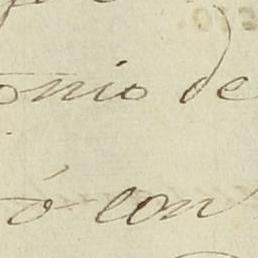 onio de
ó con